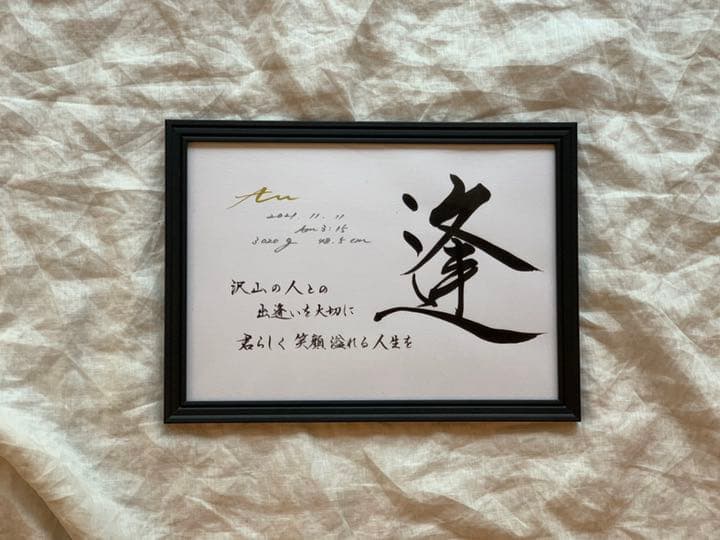 逢
Au
2021 11. 11
Am 3:15
3020g 48.5cm
沢山の人との
出逢いを大切に
君らしく 笑顔溢れる人生を